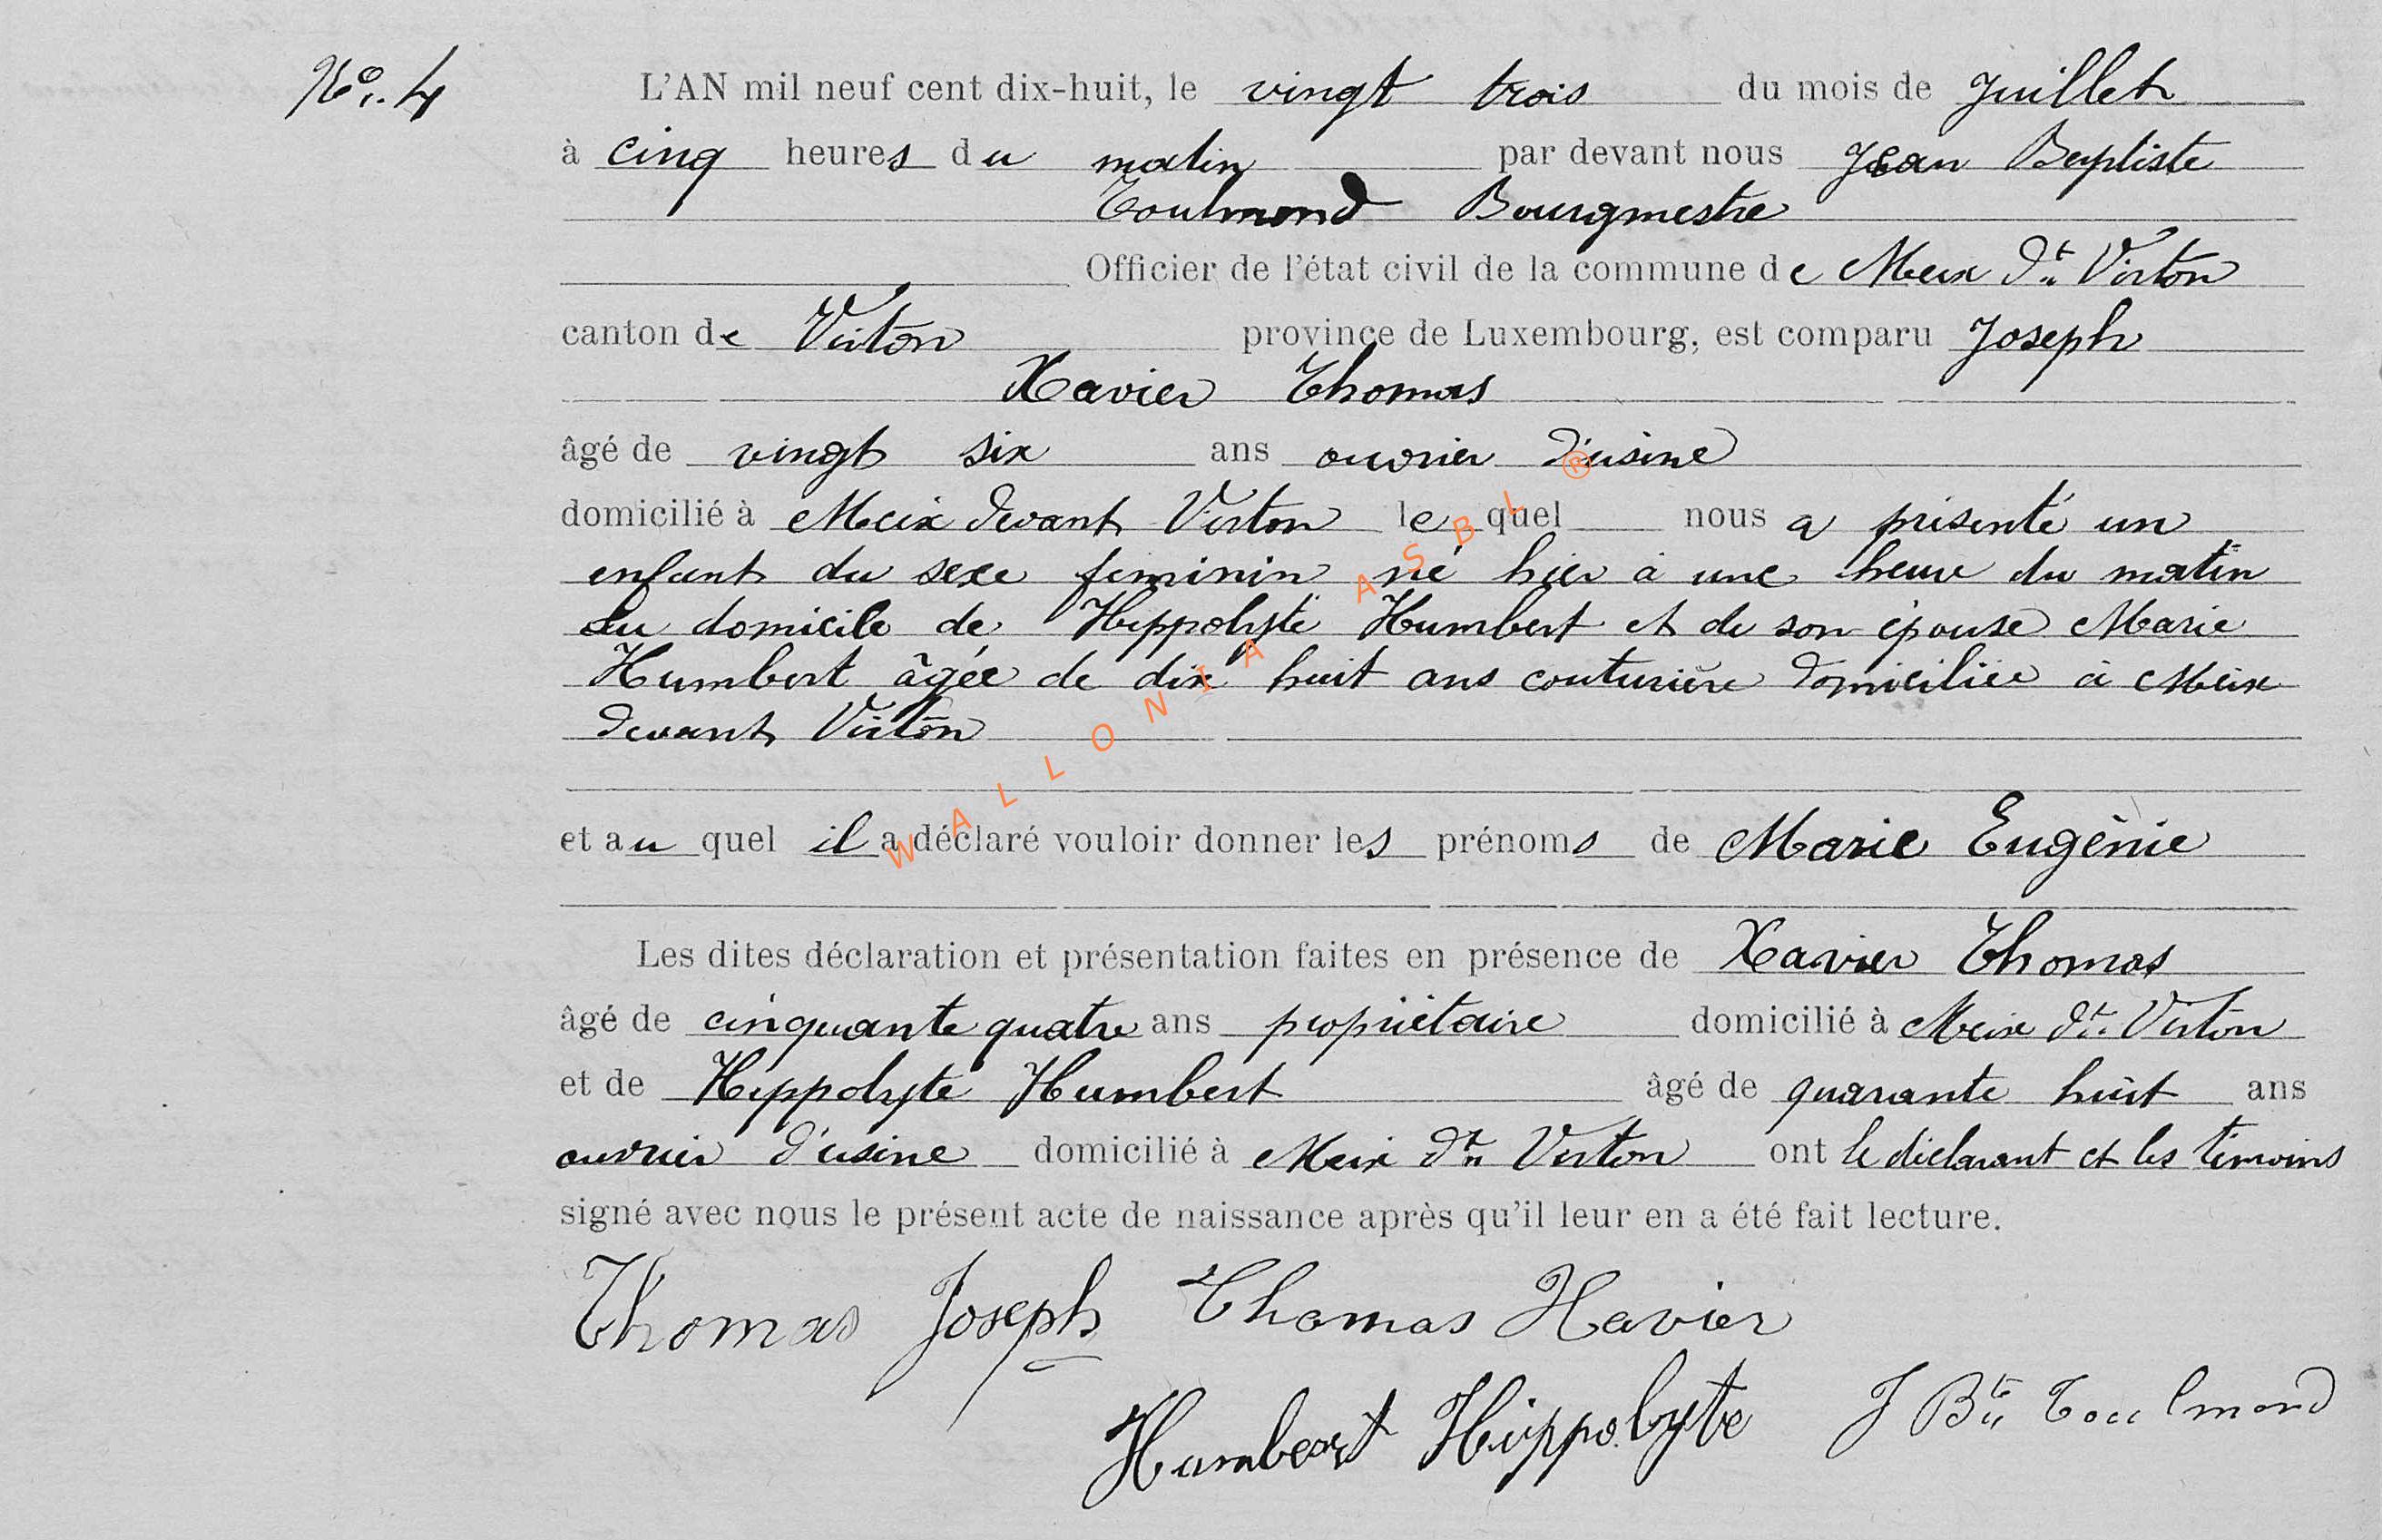 No. 4
L'AN mil neuf cent dix-huit, le vingt trois du mois de Juillet
à cinq heures du matin par devant nous Jean Baptiste
Toulmond Bourgmestre
Officier de l'état civil de la commune de Meix Dt Virton
canton de Virton province de Luxembourg, est comparu Joseph
Xavier Thomas
âgé de vingt six ans ouvrier d'usine
domicilié à Meix devant Virton le quel nous a présenté un
enfant du sexe feminin né hier à une heure du matin
au domicile de Hippolyte Humbert et de son épouse Marie
Humbert âgée de dix huit ans couturière domiciliée à Meix
devant Virton
et au quel il a déclaré vouloir donner les prénoms de Marie Eugènie
Les dites déclaration et présentation faites en présence de Xavier Thomas
âgé de cinquante quatre ans propriétaire domicilié à Meix Dt. Virton
et de Hippolyte Humbert âgé de quarante huit ans
ouvrier d'usine domicilié à Meix Dt Virton ont le déclarant et les témoins
signé avec nous le présent acte de naissance après qu'il leur en a été fait lecture.
Thomas Joseph Thomas Xavier
Humbert Hippolyte J Bte Toulmond
WALLONIA ASBL ®